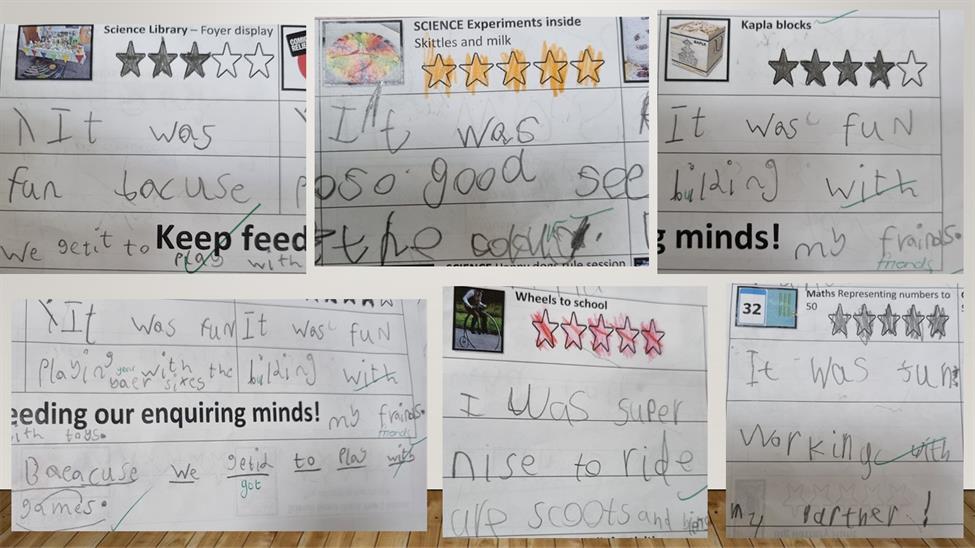 Science Library – Foyer display
It was
fun bacuse
we getit to
play with
Keep feed
SCIENCE Experiments inside
Skittles and milk
It was
oso good see
the
Kapla blocks
It was fun
building with
g minds!
my frainds.
friends
It was fun
playing with the
year sixes
It was fun
building with
eeding our enquiring minds!
my frainds.
friends
ith toys.
Baeacuse we getid to play with
got
games.
Wheels to school
I was super
nise to ride
are scoots and
32
Maths Representing numbers to
50
It was fun
working with
my partner!